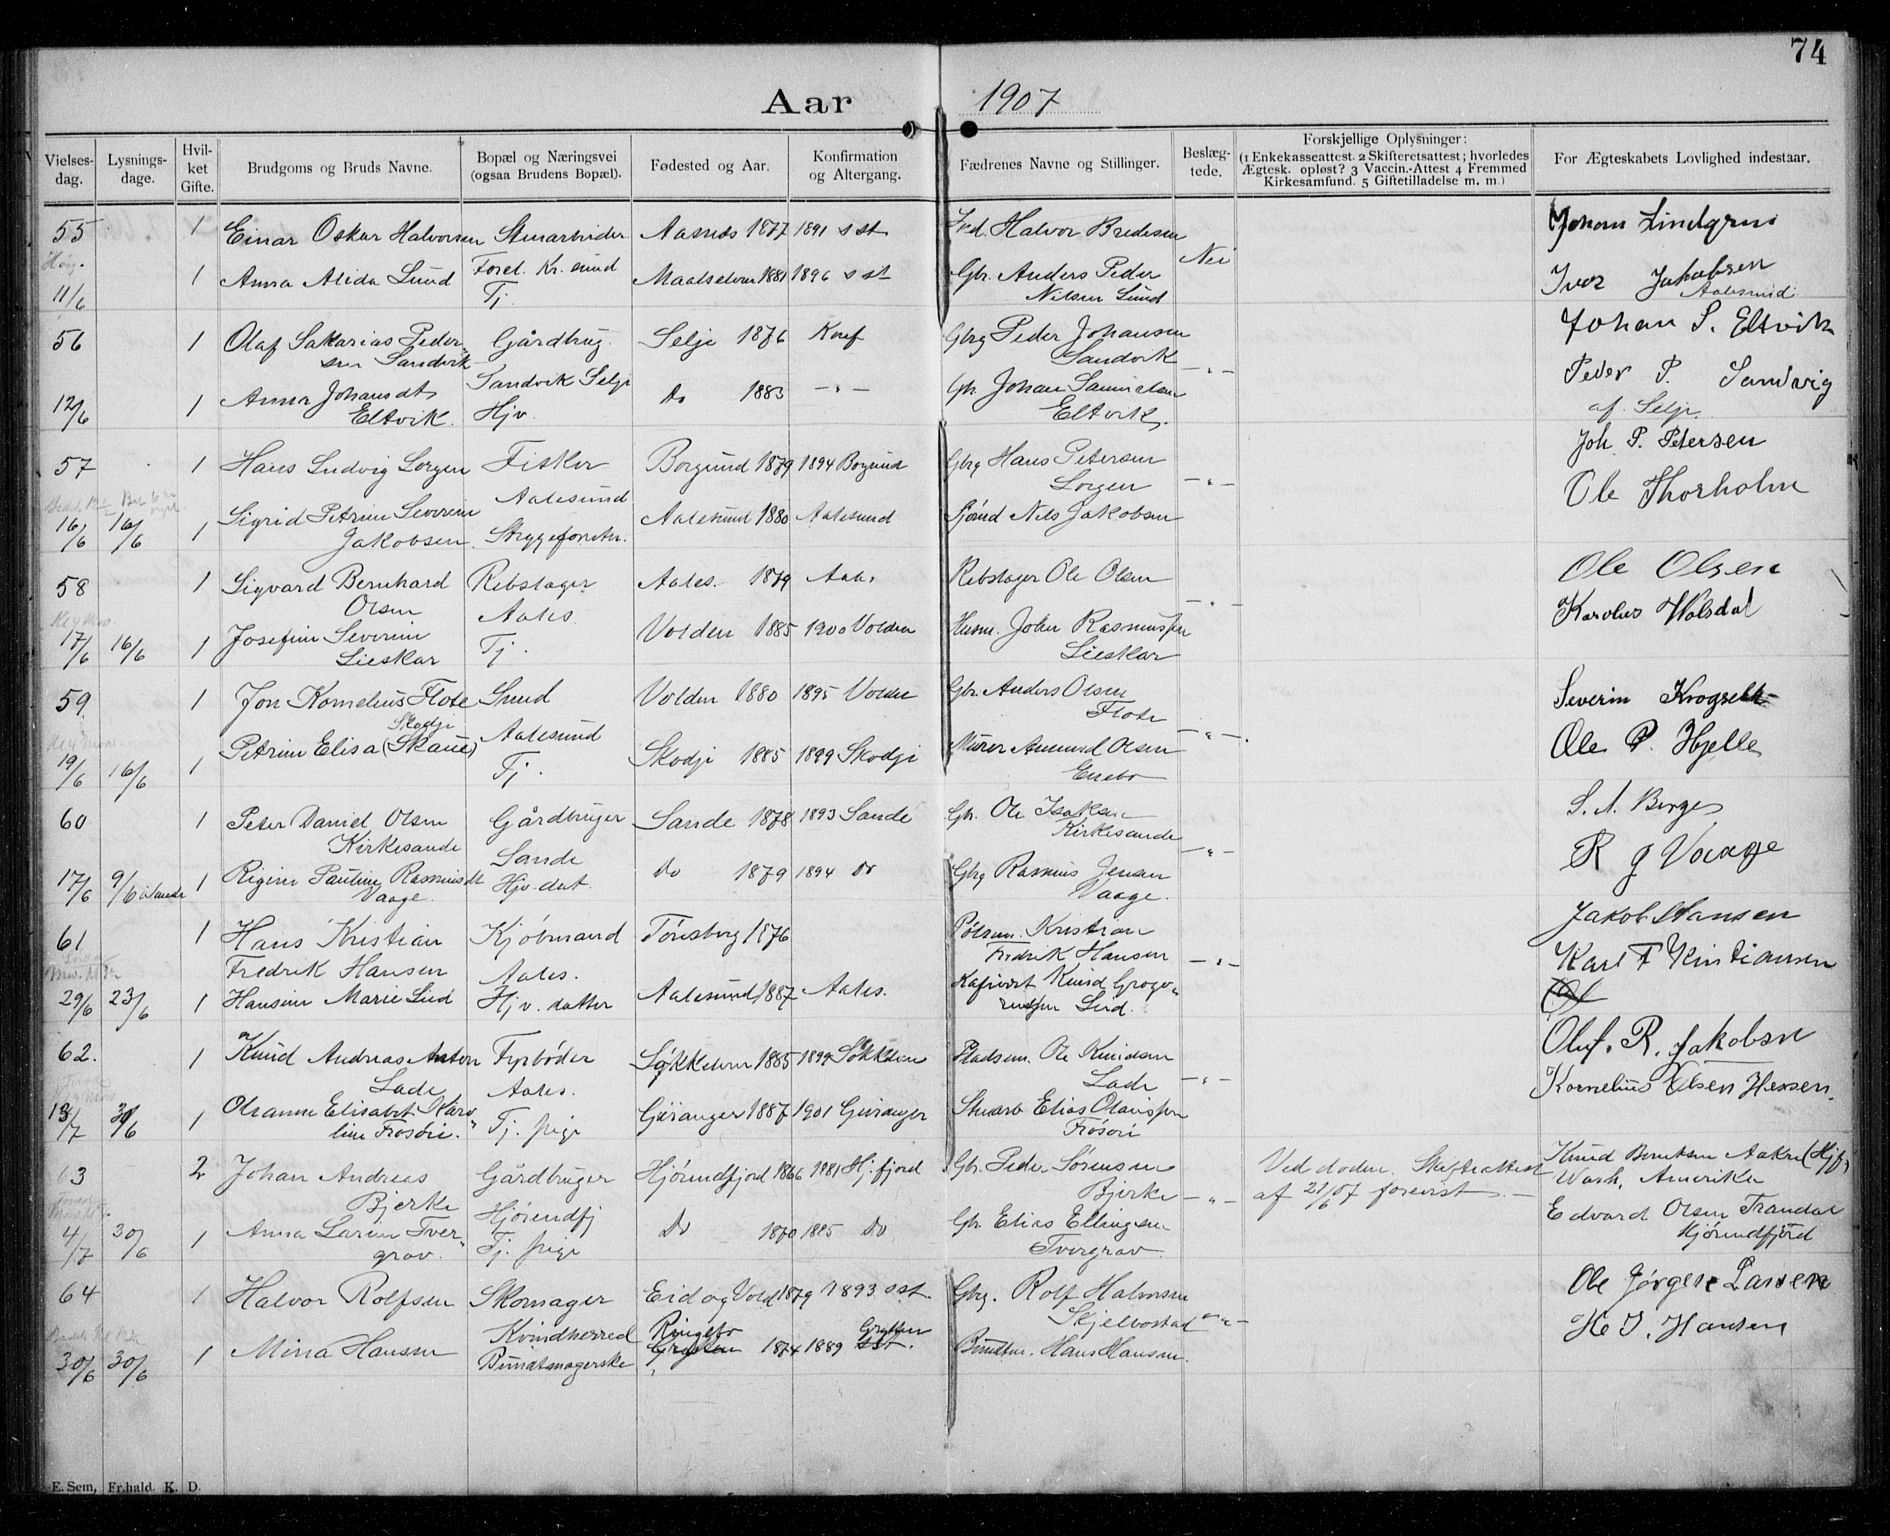 74
Aar 1907
Vielses-dag. Lysnings-dage. Hvil-ket Gifte. Brudgoms og Bruds Navne. Bopæl og Næringsvei (ogsaa Brudens Bopæl). Fødested og Aar. Konfirmation og Altergang. Fædrenes Navne og Stillinger. Beslæg-tede. Forskjellige Oplysninger: (1 Enkekasseattest. 2 Skifteretsattest; hvorledes Ægtesk. opløst? 3 Vaccin.-Attest 4 Fremmed Kirkesamfund. 5 Giftetilladelse m. m.) For Ægteskabets Lovlighed indestaar.
55 1 Einar Oskar Halvorsen Stenarbeider Aasnes 1877 1891 sst Halvor Bredesen Nei Johan Lindgren
11/6 1 Anna Alida Lund Foret. Kr. sund Tj. Maalselven 1881 1896 sst Gbr. Anders Peder Nilsen Lund Iver Jakobsen Aalesund
56 1 Olaf Sakarias Peder-sen Sandvik Gårdbrug. Sandvik Selje Selje 1876 Konf Gbrg Peder Johansen Sandvik -"- Johan S. Eltvik
12/6 1 Anna Johansdt Eltvik. Hjv. Do 1883 -"- Gbr. Johan Samuelsen Eltvik. Peder P. Sandvig af Selje.
57 1 Hans Ludvig Sorgen Fisker Aalesund Borgund 1879 1894 Borgund Gbrg Hans Petersen Sorgen -"- Joh. P. Petersen
16/6 16/6 1 Sigrid Petrine Severine Jakobsen. Strygeforretn. Aalesund 1880 Aalesund Nils Jakobsen Ole Thorholm
58 1 Sigvard Bernhard Olsen Rebslager Aales. Aales. 1879 Aales. Rebslager Ole Olsen -"- Ole Olsen
17/6 16/6 1 Josefine Severine Lieskar Tj. Volden 1885 1900 Volden Husm. John Rasmussen Lieskar Karolus Volsdal
59 1 Jon Kornelius Flote Smed Aalesund Volden 1880 1895 Volden Gbr. Anders Olsen Flote -"- Severin Krogsett
19/6 16/6 1 Petrine Elisa (Skaue) Skodje Tj. Skodje 1885 1899 Skodje Murer Amund Olsen Enebo Ole P. Hjelle
60 1 Peter Daniel Olsen Kirkesande Gårdbruger Sande Sande 1878 1893 Sande Gbr. Ole Isaksen Kirkesande -"- S. A. Berge
17/6 9/6 i Sande 1 Regine Pauline Rasmusdt Vaage. Hjv. dat. Do 1879 1894 Do Gbrg Rasmus Jensen Vaage. R G Vaage
61 1 Hans Kristian Fredrik Hansen Kjøbmand Aales. Tønsberg 1876 Pølsem. Kristian Fredrik Hansen -"- Jakob Hansen
29/6 23/6 1 Hansine Marie Lied Hjv. datter Aalesund 1887 Aales. Kafévert Knud Lied. Karl F Kristiansen
62. 1 Knud Andreas Anton Lade Fyrbøder Aales. Søkkelven 1885 1899 Søkkelven Pladsm. Ole Knudsen Lade -"- Oluf. R. Jakobsen
13/7 30/6 1 Olianne Elisabet Karo-line Frøsøri. Tj. pige Geiranger 1887 1901 Geiranger Stenarb Elias Olaussen Frøsøri Kornelius Olsen Hessen.
63 2 Johan Andreas Bjerke Gårdbruger Hjørendfj Hjørundfjord 1866 1881 Hj.fjord Gbr. Peder Sørensen Bjerke -"- Ved døden. Skifteattest af 21/6 07 forevist. - Knud Berntsen Aakre (Hjf.) Wash. Amerika
4/7 30/6 1 Anna Larine Tver-grov. Tj. pige Do 1870 1885 Do Gbr. Elias Ellingsen Tvergrov Edvard Olsen Trandal Hjørundfjord
64 1 Halvor Rolfsen Skomager Kvindherred Eid og Vold 1879 1893 sst. Gbrg. Rolf Halvorsen Skjelbostad -"- Ole Jørgen Larsen
30/6 30/6 1 Mina Hansen Bundtmagerske Ringebo Grytten 1874 1889 Grytten sst. Bundtm. Hans Hansen. H. J. Hansen
E. Sem, Fr.hald. K. D.